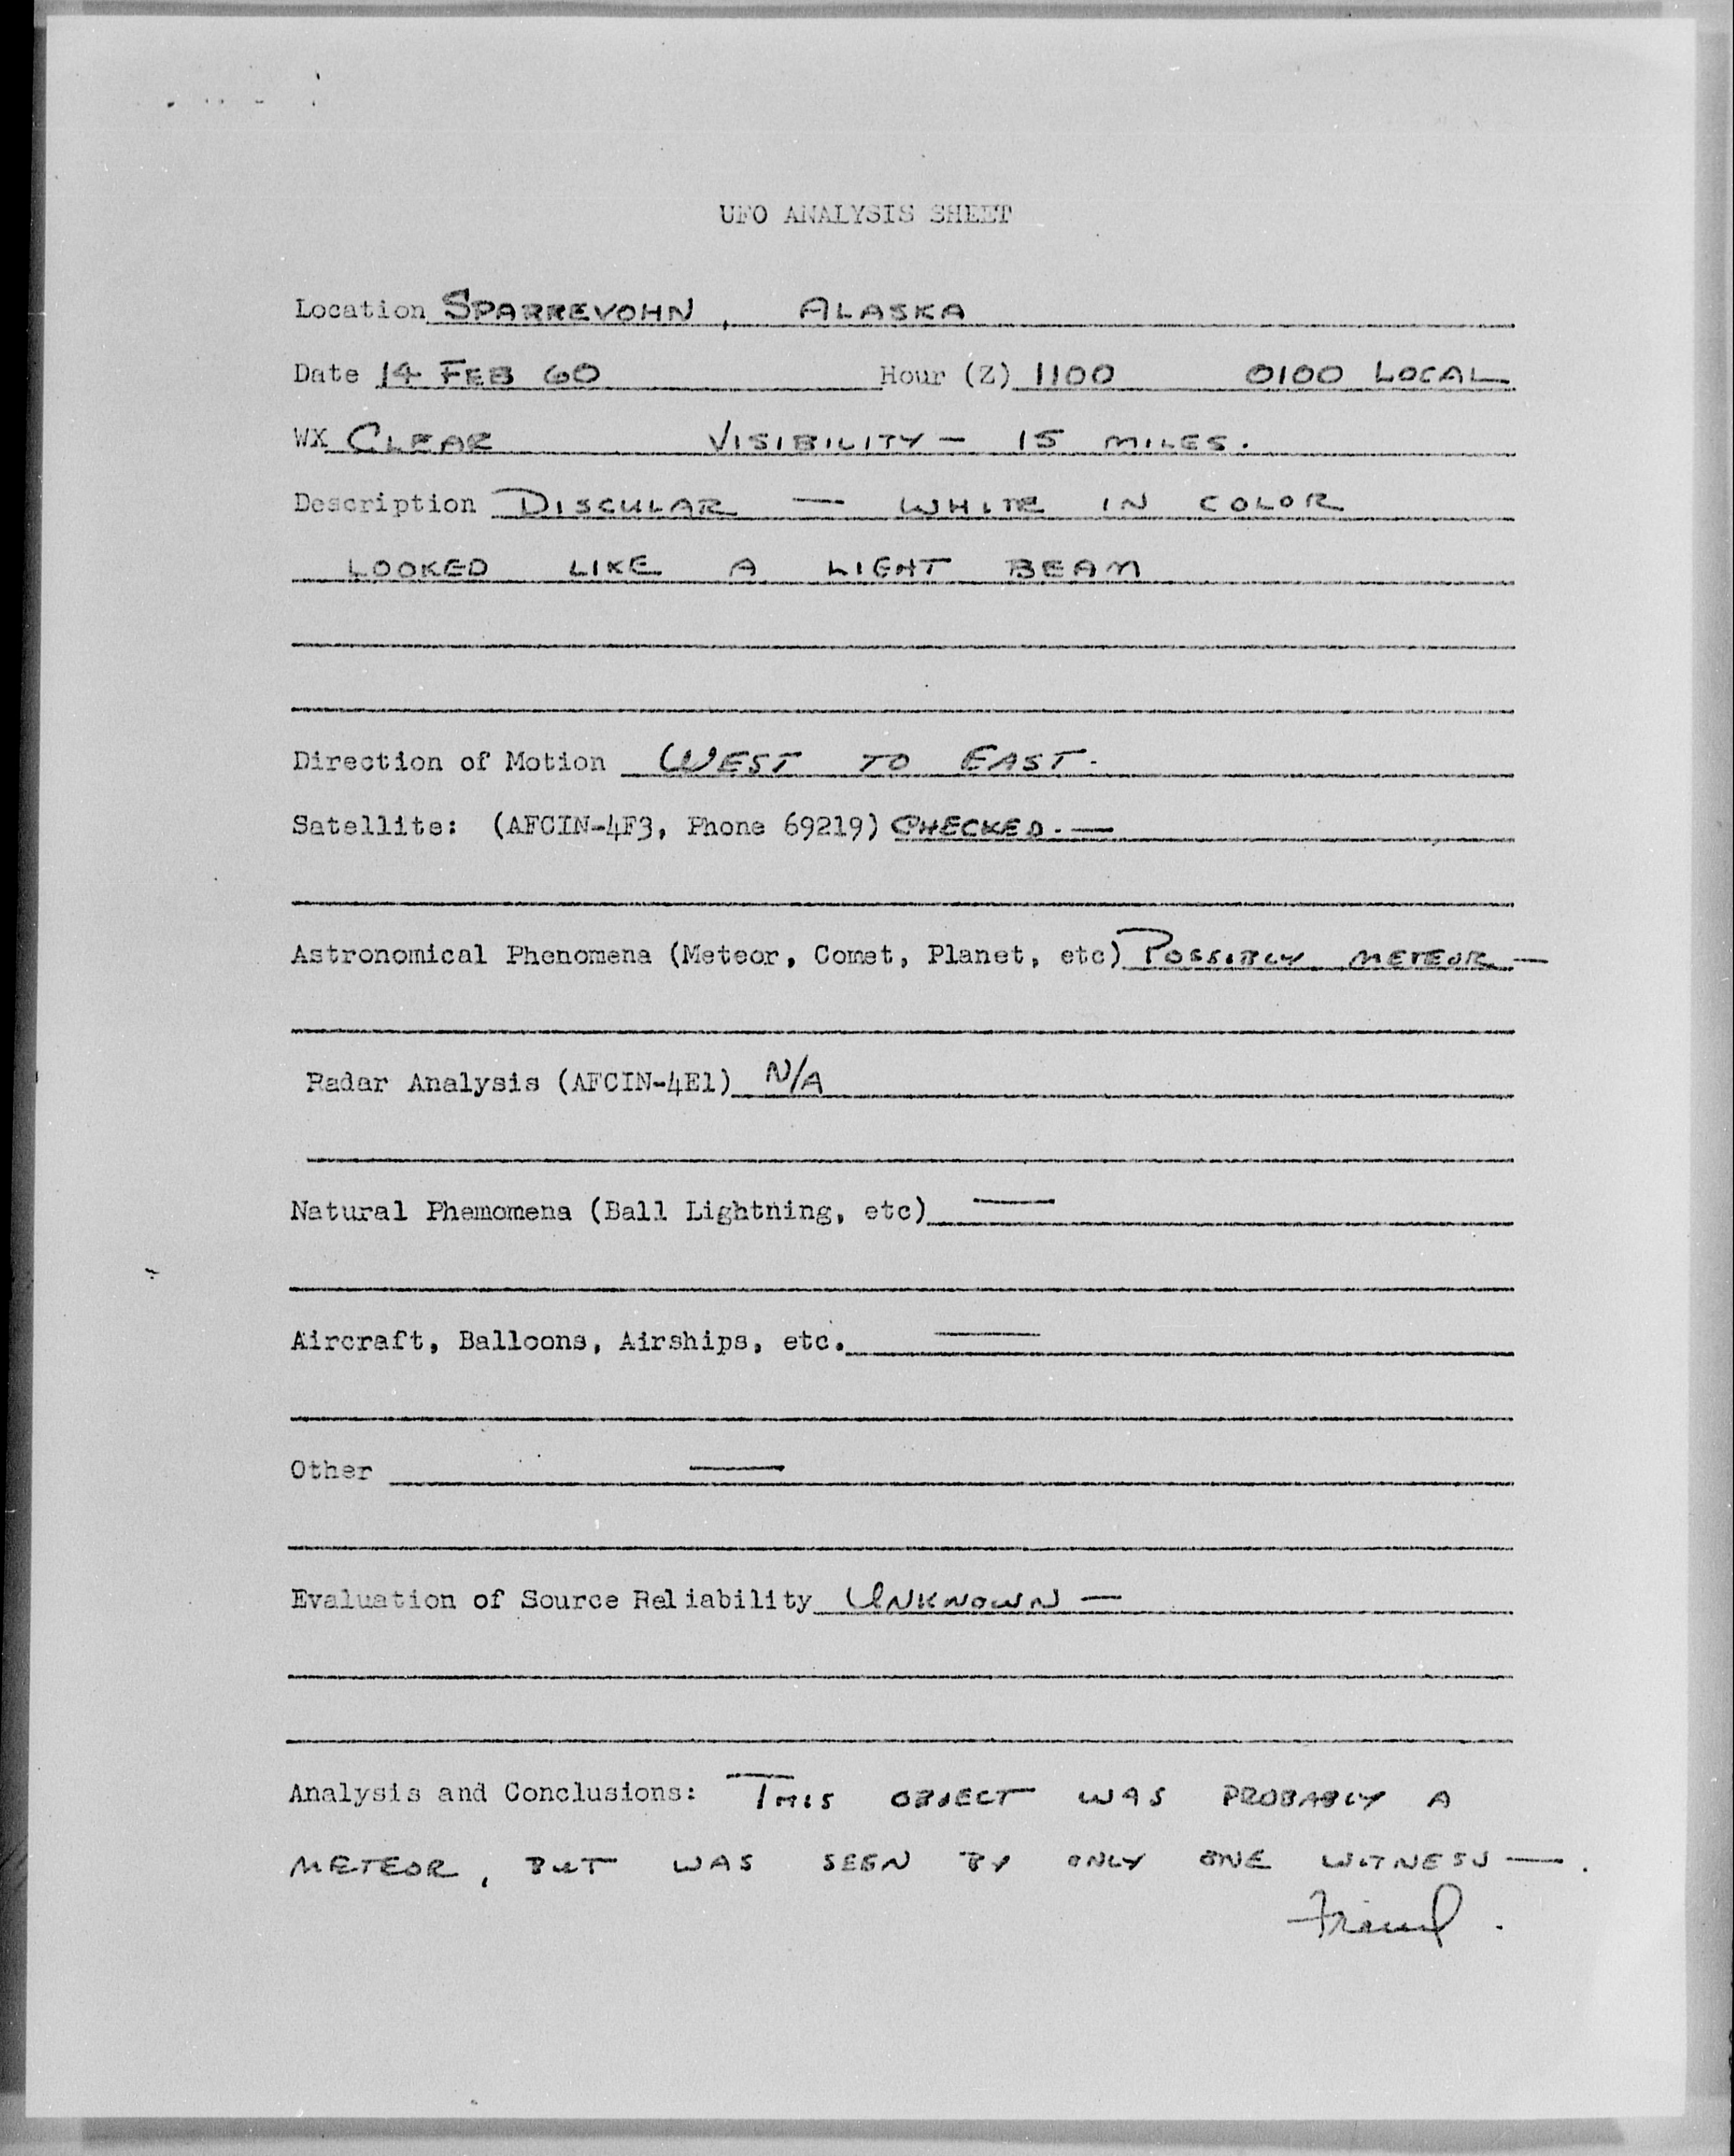 UFO ANALYSIS SHEET
Location SPARREVOHN, ALASKA
Date 14 FEB 60 Hour (Z) 1100 0100 LOCAL
WX CLEAR VISIBILITY — 15 MILES.
Description DISCULAR — WHITE IN COLOR
LOOKED LIKE A LIGHT BEAM
Direction of Motion WEST TO EAST.
Satellite: (AFCIN-4F3, Phone 69219) CHECKED. —
Astronomical Phenomena (Meteor, Comet, Planet, etc) POSSIBLY METEOR —
Radar Analysis (AFCIN-4E1) N/A
Natural Phemomena (Ball Lightning, etc) —
Aircraft, Balloons, Airships, etc. —
Other —
Evaluation of Source Reliability UNKNOWN —
Analysis and Conclusions: THIS OBJECT WAS PROBABLY A
METEOR, BUT WAS SEEN BY ONLY ONE WITNESS —.
Friend.